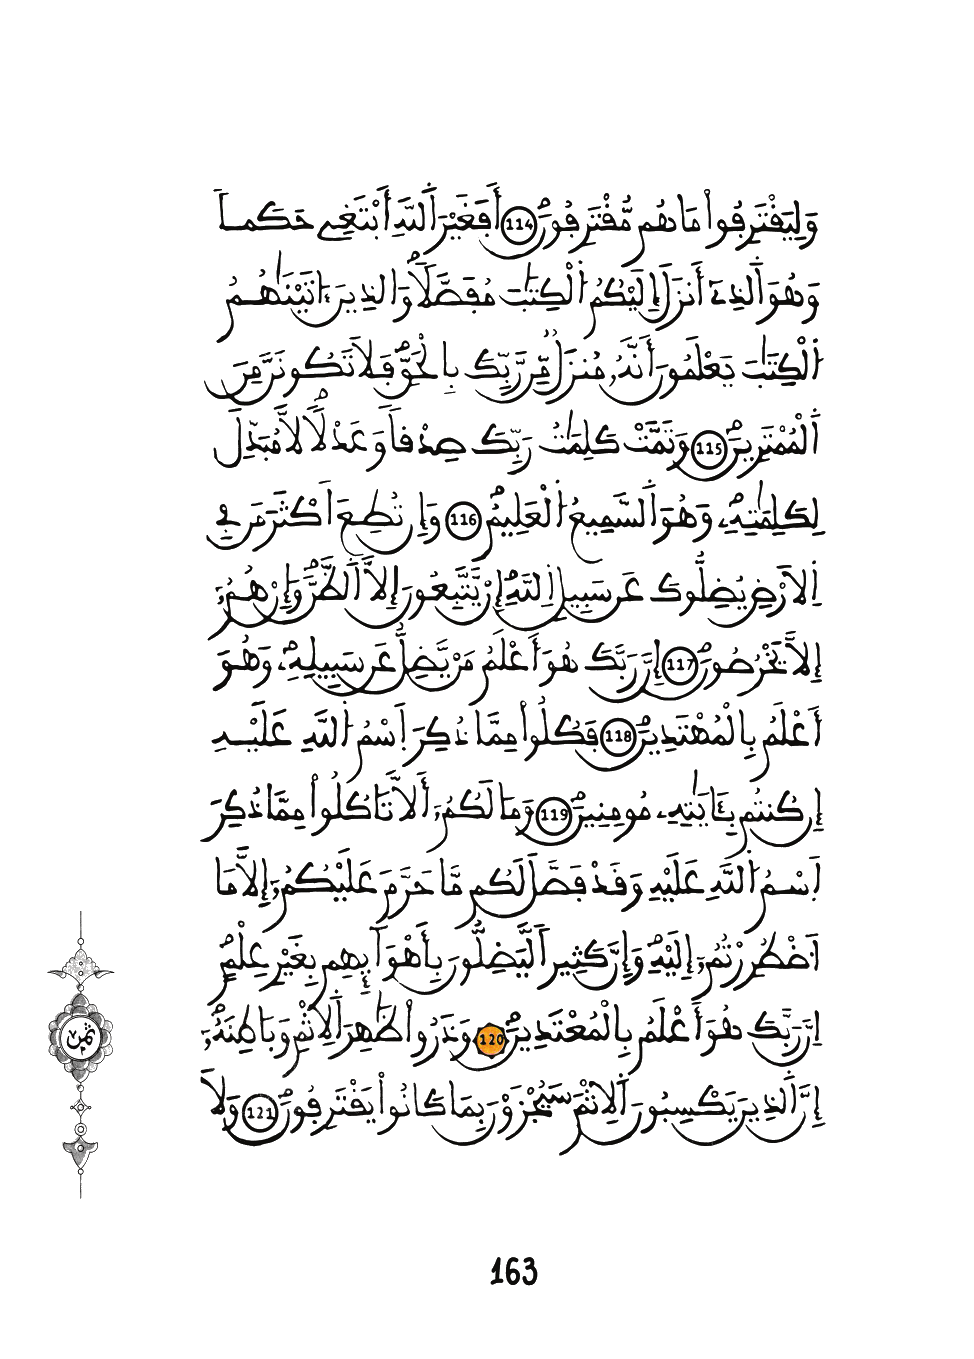 وَلِيَقْتَرِفُواْ مَا هُم مُّقْتَرِفُونَ 114 أَفَغَيْرَ اَللَّهِ أَبْتَغِے حَكَماٗ
وَهُوَ اَلذِےٓ أَنزَلَ إِلَيْكُمُ اُلْكِتَٰبَ مُفَصَّلاٗ وَالذِينَ ءَاتَيْنَٰهُمُ
اُلْكِتَٰبَ يَعْلَمُونَ أَنَّهُۥ مُنزَلٞ مِّن رَّبِّكَ بِالْحَقِّ فَلَا تَكُونَنَّ مِنَ
اَلْمُمْتَرِينَ 115 وَتَمَّتْ كَلِمَٰتُ رَبِّكَ صِدْقاٗ وَعَدْلاٗ لَّا مُبَدِّلَ
لِكَلِمَٰتِهِۦ وَهُوَ اَلسَّمِيعُ اُلْعَلِيمُ 116 وَإِن تُطِعَ اَكْثَرَ مَن فِے
اِلَارْضِ يُضِلُّوكَ عَن سَبِيلِ اِللَّهِ إِنْ يَّتَّبِعُونَ إِلَّا اَلظَّنَّ وَإِنْ هُمُۥٓ
إِلَّا يَخْرُصُونَ 117 إِنَّ رَبَّكَ هُوَ أَعْلَمُ مَنْ يَّضِلُّ عَن سَبِيلِهِۦ وَهُوَ
أَعْلَمُ بِالْمُهْتَدِينَ 118 فَكُلُواْ مِمَّا ذُكِرَ اَسْمُ اُللَّهِ عَلَيْهِ
إِن كُنتُم بِـَٔايَٰتِهِۦ مُومِنِينَ 119 وَمَا لَكُمُۥٓ أَلَّا تَاكُلُواْ مِمَّا ذُكِرَ
اَسْمُ اُللَّهِ عَلَيْهِ وَقَدْ فَصَّلَ لَكُم مَّا حَرَّمَ عَلَيْكُمُۥٓ إِلَّا مَا
اَضْطُرِرْتُمُۥٓ إِلَيْهِ وَإِنَّ كَثِيراٗ لَّيَضِلُّونَ بِأَهْوَآئِهِم بِغَيْرِ عِلْمٍ
اِنَّ رَبَّكَ هُوَ أَعْلَمُ بِالْمُعْتَدِينَ 120 وَذَرُواْ ظَٰهِرَ اَلِاثْمِ وَبَاطِنَهُۥٓ
إِنَّ اَلذِينَ يَكْسِبُونَ اَلِاثْمَ سَيُجْزَوْنَ بِمَا كَانُواْ يَقْتَرِفُونَ 121 وَلَا
ثمن
163